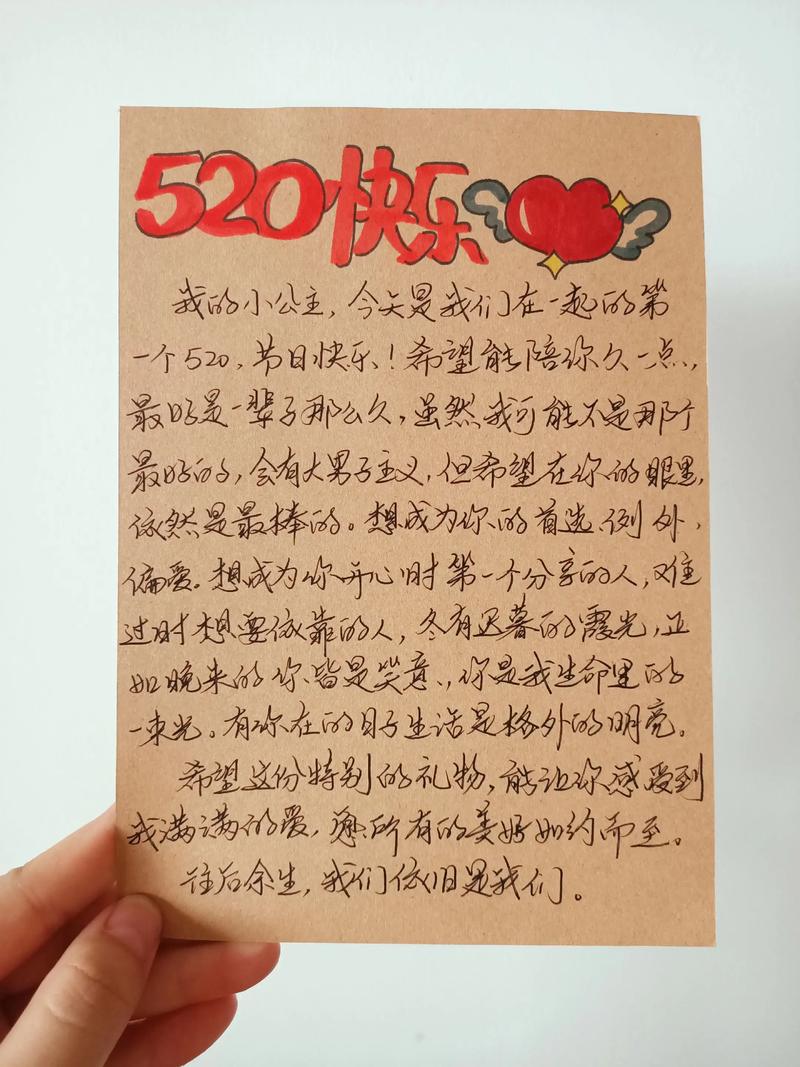 520快乐
我的小公主，今天是我们在一起的第
一个520，节日快乐！希望能陪你久一点，
最好是一辈子那么久，虽然我可能不是那个
最好的，会有大男子主义，但希望在你的眼里，
依然是最棒的。想成为你的首选、例外，
偏爱。想成为你开心时第一个分享的人，难
过时想要依靠的人，冬有迟暮的霞光，正
如晚来的你皆是笑意，你是我生命里的
一束光。有你在的日子生活是格外的明亮。
希望这份特别的礼物，能让你感受到
我满满的爱，愿所有的美好如约而至。
往后余生，我们依旧是我们。